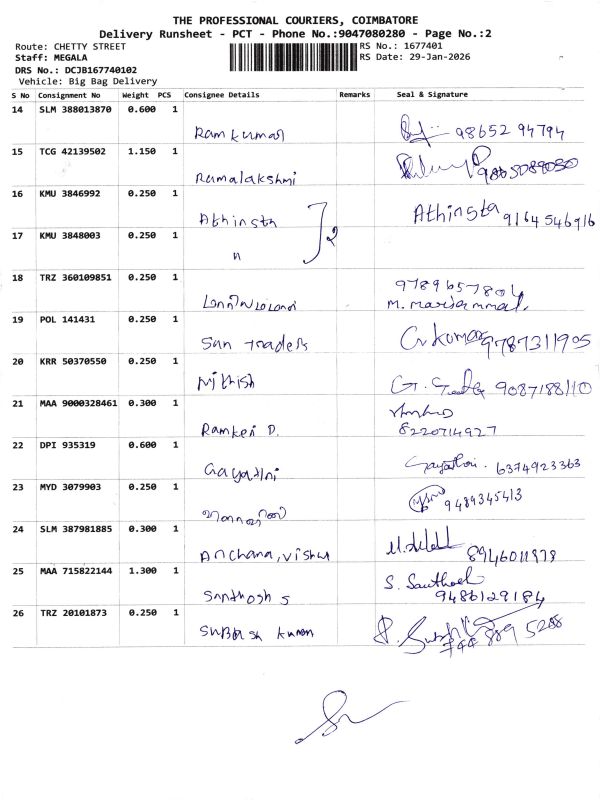 THE PROFESSIONAL COURIERS, COIMBATORE
Delivery Runsheet - PCT - Phone No.:9047080280 - Page No.:2
Route: CHETTY STREET
Staff: MEGALA
DRS No.: DCJB167740102
Vehicle: Big Bag Delivery
RS No.: 1677401
RS Date: 29-Jan-2026
S No Consignment No Weight PCS Consignee Details Remarks Seal & Signature
14 SLM 388013870 0.600 1 Ramkumar 98652 94794
15 TCG 42139502 1.150 1 Ramalakshmi
16 KMU 3846992 0.250 1 Athinsta 2 Athinsta 9164546916
17 KMU 3848003 0.250 1 "
18 TRZ 360109851 0.250 1 9789657804
M. Mariammal
19 POL 141431 0.250 1 Sun Traders 9787311905
20 KRR 50370550 0.250 1 Nithish 9087188110
21 MAA 9000328461 0.300 1 Ramkeri D. 8220714927
22 DPI 935319 0.600 1 Gayathri Gayathri. 6374923363
23 MYD 3079903 0.250 1 9489345413
24 SLM 387981885 0.300 1 Archana, Vishwa
25 MAA 715822144 1.300 1 Santhosh S S. Santhosh
9486129184
26 TRZ 20101873 0.250 1 Subash Kumar